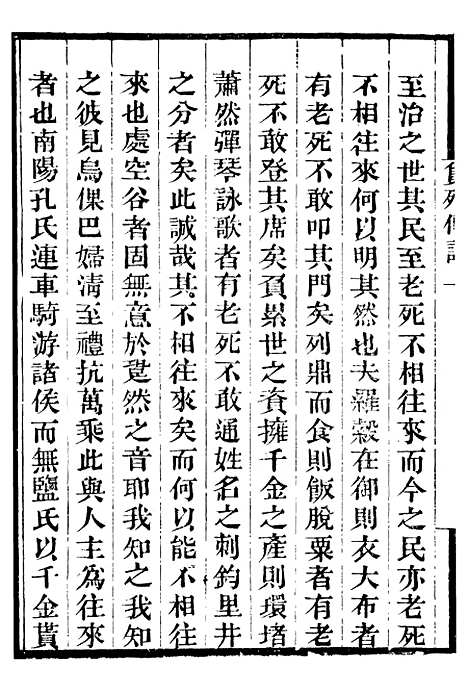 貨殖傳評一
至治之世其民至老死不相往來而今之民亦老死
不相往來何以明其然也夫羅縠在御則衣大布者
有老死不敢叩其門矣列鼎而食則飯脫粟者有老
死不敢登其席矣負累世之貲擁千金之產則環堵
蕭然彈琴詠歌者有老死不敢通姓名之刺鈞里井
之分者矣此誠哉其不相往來矣而何以能不相往
來也處空谷者固無意於跫然之音耶我知之我知
之彼見烏倮巴婦清至禮抗萬乘此與人主為往來
者也南陽孔氏連車騎游諸侯而無鹽氏以千金貰